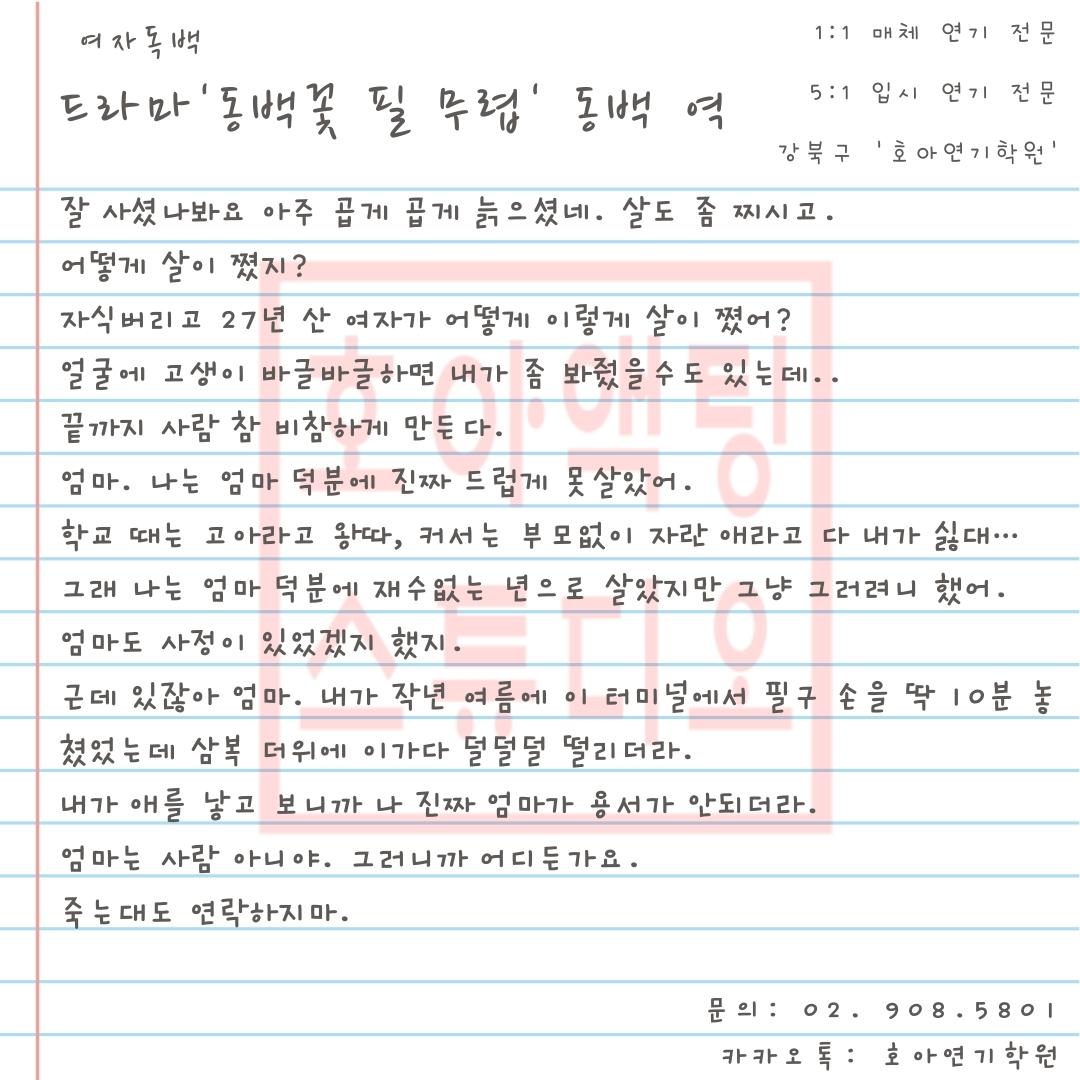 여자독백
드라마'동백꽃 필 무렵' 동백 역
1:1 매체 연기 전문
5:1 입시 연기 전문
강북구 '호아연기학원'
잘 사셨나봐요 아주 곱게 곱게 늙으셨네. 살도 좀 찌시고.
어떻게 살이 쪘지?
자식버리고 27년 산 여자가 어떻게 이렇게 살이 쪘어?
얼굴에 고생이 바글바글하면 내가 좀 봐줬을수도 있는데..
끝까지 사람 참 비참하게 만든다.
엄마. 나는 엄마 덕분에 진짜 드럽게 못살았어.
학교 때는 고아라고 왕따, 커서는 부모없이 자란 애라고 다 내가 싫대…
그래 나는 엄마 덕분에 재수없는 년으로 살았지만 그냥 그러려니 했어.
엄마도 사정이 있었겠지 했지.
근데 있잖아 엄마. 내가 작년 여름에 이 터미널에서 필구 손을 딱 10분 놓
쳤었는데 삼복 더위에 이가다 덜덜덜 떨리더라.
내가 애를 낳고 보니까 나 진짜 엄마가 용서가 안되더라.
엄마는 사람 아니야. 그러니까 어디든가요.
죽는대도 연락하지마.
호아액팅
스튜디오
문의: 02. 908.5801
카카오톡: 호아연기학원